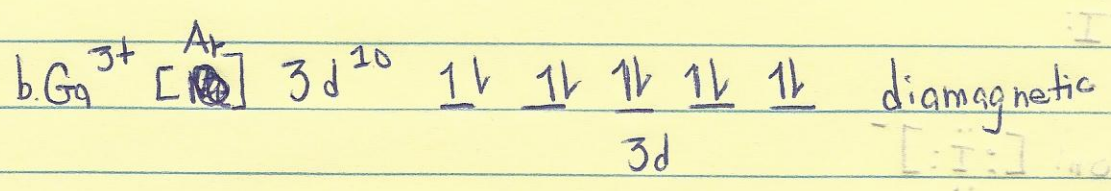 b. Ga³⁺ [Ar] 3d¹⁰ 1↓ 1↓ 1↓ 1↓ 1↓ diamagnetic
3d